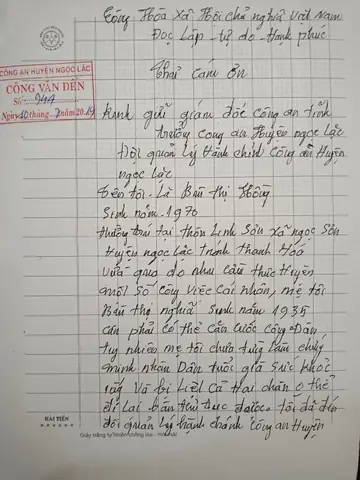 Cộng Hòa Xã Hội chủ nghĩa Việt Nam
Độc Lập - tự do - Hạnh phúc
CÔNG AN HUYỆN NGỌC LẶC
CÔNG VĂN ĐẾN
Số: 944
Ngày 10 tháng 7 năm 2019
Thư Cám Ơn
Kính gửi giám đốc công an tỉnh
trưởng công an Huyện ngọc Lặc
Đội quản Lý Hành chính Công An Huyện
ngọc Lặc
tên tôi - Là Bùi Thị Hồng
Sinh năm - 1970
thường trú tại thôn Linh Sơn xã ngọc Sơn
Huyện ngọc Lặc tỉnh thanh Hóa
vừa qua do nhu cầu thực Hiện
một số công việc cái nhân, mẹ tôi
Bùi thị nghĩa Sinh năm 1935
cần phải có thẻ căn cước công Dân
tuy nhiên mẹ tôi chưa từng Làm chứng
minh nhân Dân tuổi già Sức khỏe
yếu và bị Liệt cả Hai chân o thể
đi lại bán thủ tục được. tôi đã đến
đội quản Lý hành chánh công an Huyện
HẢI TIẾN